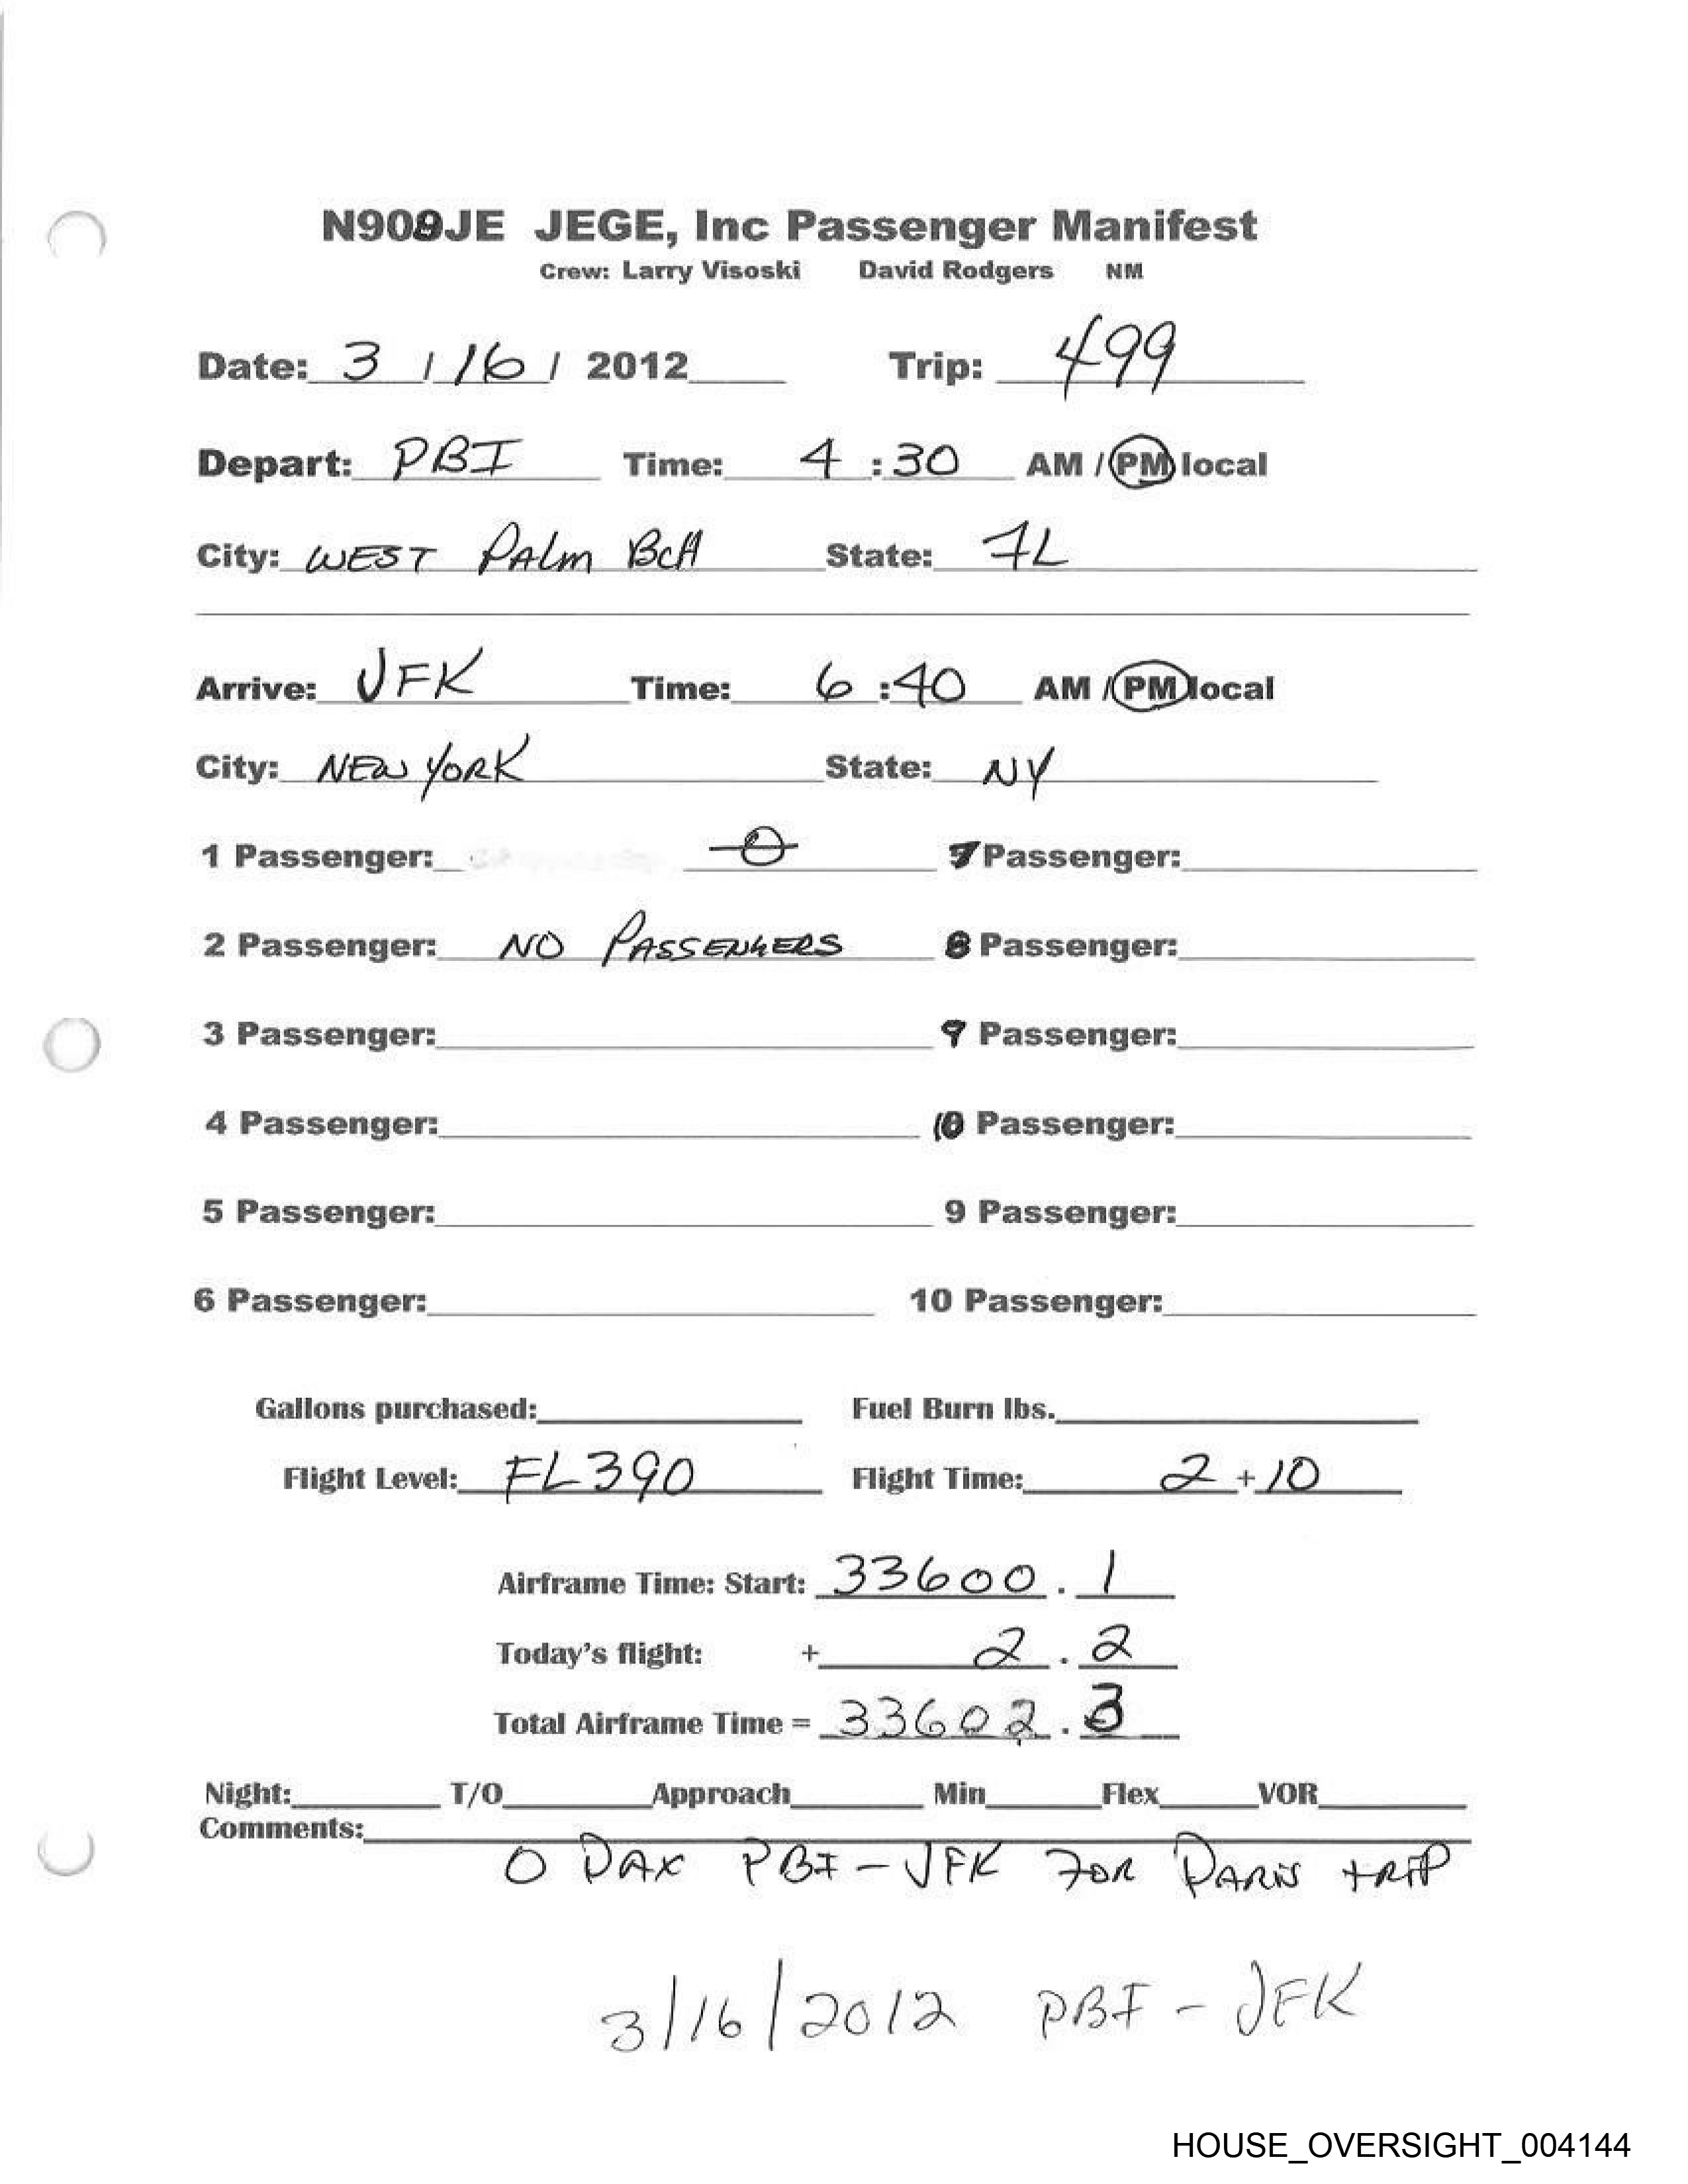 N909JE JEGE, Inc Passenger Manifest
Crew: Larry Visoski David Rodgers NM
Date: 3 / 16 / 2012 Trip: 499
Depart: PBI Time: 4 : 30 AM / PM local
City: WEST PALM BCH State: FL
Arrive: JFK Time: 6 :40 AM / PM local
City: NEW YORK State: NY
1 Passenger: 0 7 Passenger:
2 Passenger: NO PASSENGERS 8 Passenger:
3 Passenger: 9 Passenger:
4 Passenger: 10 Passenger:
5 Passenger: 9 Passenger:
6 Passenger: 10 Passenger:
Gallons purchased: Fuel Burn lbs.
Flight Level: FL390 Flight Time: 2 + 10
Airframe Time: Start: 33600 . 1
Today's flight: + 2 . 2
Total Airframe Time = 33602 . 3
Night: T/O Approach Min Flex VOR
Comments:
0 PAX PBI - JFK FOR PARIS TRIP
3/16/2012 PBI - JFK
HOUSE_OVERSIGHT_004144